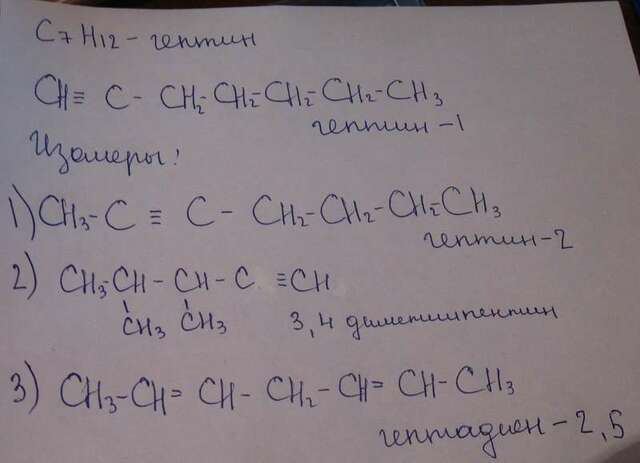 C7H12 - гептин
CH≡ C - CH2-CH2-CH2-CH2-CH3
гептин -1
Изомеры:
1) CH3-C ≡ C - CH2-CH2-CH2-CH3
гептин-2
2) CH3-CH - CH - C ≡CH
CH3 CH3
3,4 диметилпентин
3) CH3-CH= CH- CH2-CH= CH-CH3
гептадиен-2,5